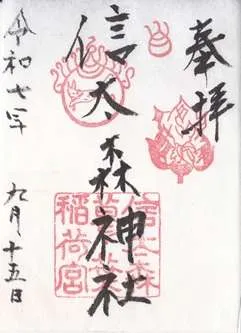 奉拝
信太森神社
信太森
葛葉
稲荷宮
令和七年 九月十五日